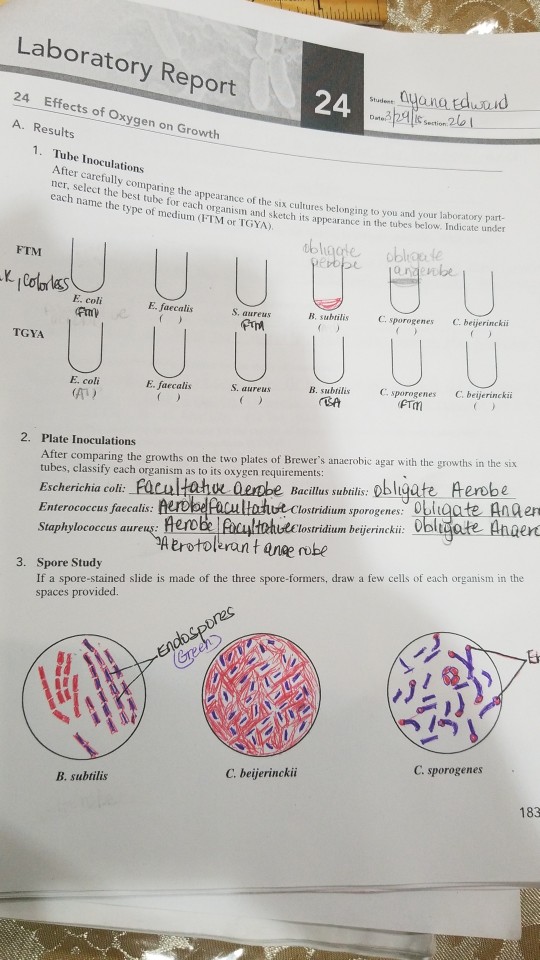 Laboratory Report
24
Student: Nyana Edward
Date: 3/29/18 Section: 261
24 Effects of Oxygen on Growth
A. Results
1. Tube Inoculations
After carefully comparing the appearance of the six cultures belonging to you and your laboratory part-
ner, select the best tube for each organism and sketch its appearance in the tubes below. Indicate under
each name the type of medium (FTM or TGYA).
obligate aerobe
obligate anaerobe
FTM
, Colorless
E. coli E. faecalis S. aureus B. subtilis C. sporogenes C. beijerinckii
(FTM) ( ) (FTM) ( ) ( ) ( )
TGYA
E. coli E. faecalis S. aureus B. subtilis C. sporogenes C. beijerinckii
( ) ( ) (TSA) (FTM) ( )
2. Plate Inoculations
After comparing the growths on the two plates of Brewer's anaerobic agar with the growths in the six
tubes, classify each organism as to its oxygen requirements:
Escherichia coli: Facultative aerobe Bacillus subtilis: Obligate Aerobe
Enterococcus faecalis: Aerobe/Facultative Clostridium sporogenes: Obligate Anaer
Staphylococcus aureus: Aerobe/Facultative Clostridium beijerinckii: Obligate Anaero
Aerotolerant anaerobe
3. Spore Study
If a spore-stained slide is made of the three spore-formers, draw a few cells of each organism in the
spaces provided.
Endospores
(Green)
B. subtilis C. beijerinckii C. sporogenes
183